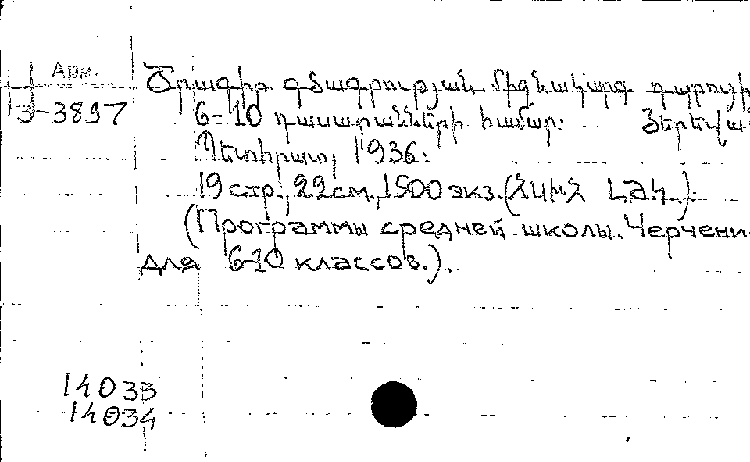 Арм.
Ծրագիր գծագրության միջնակարգ դպրոցի
3-3897
6-10 դասարանների համար: Յերեվա
Պետհրատ, 1936:
19 стр., 22 см., 1500 экз. (ՀՍԽՀ ԼԺԿ.)
(Программы средней школы. Черчени
для 6-10 классов.).
14033
14034